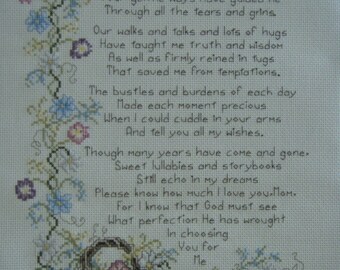 gentle ways have guided me
Through all the tears and grins.
Our walks and talks and lots of hugs
Have taught me truth and wisdom
As well as firmly reined in tugs
That saved me from temptations.
The bustles and burdens of each day
Made each moment precious
When I could cuddle in your arms
And tell you all my wishes.
Though many years have come and gone.
Sweet lullabies and storybooks
Still echo in my dreams
Please know how much I love you,Mom.
For I know that God must see
What perfection He has wrought
In choosing
You for
Me